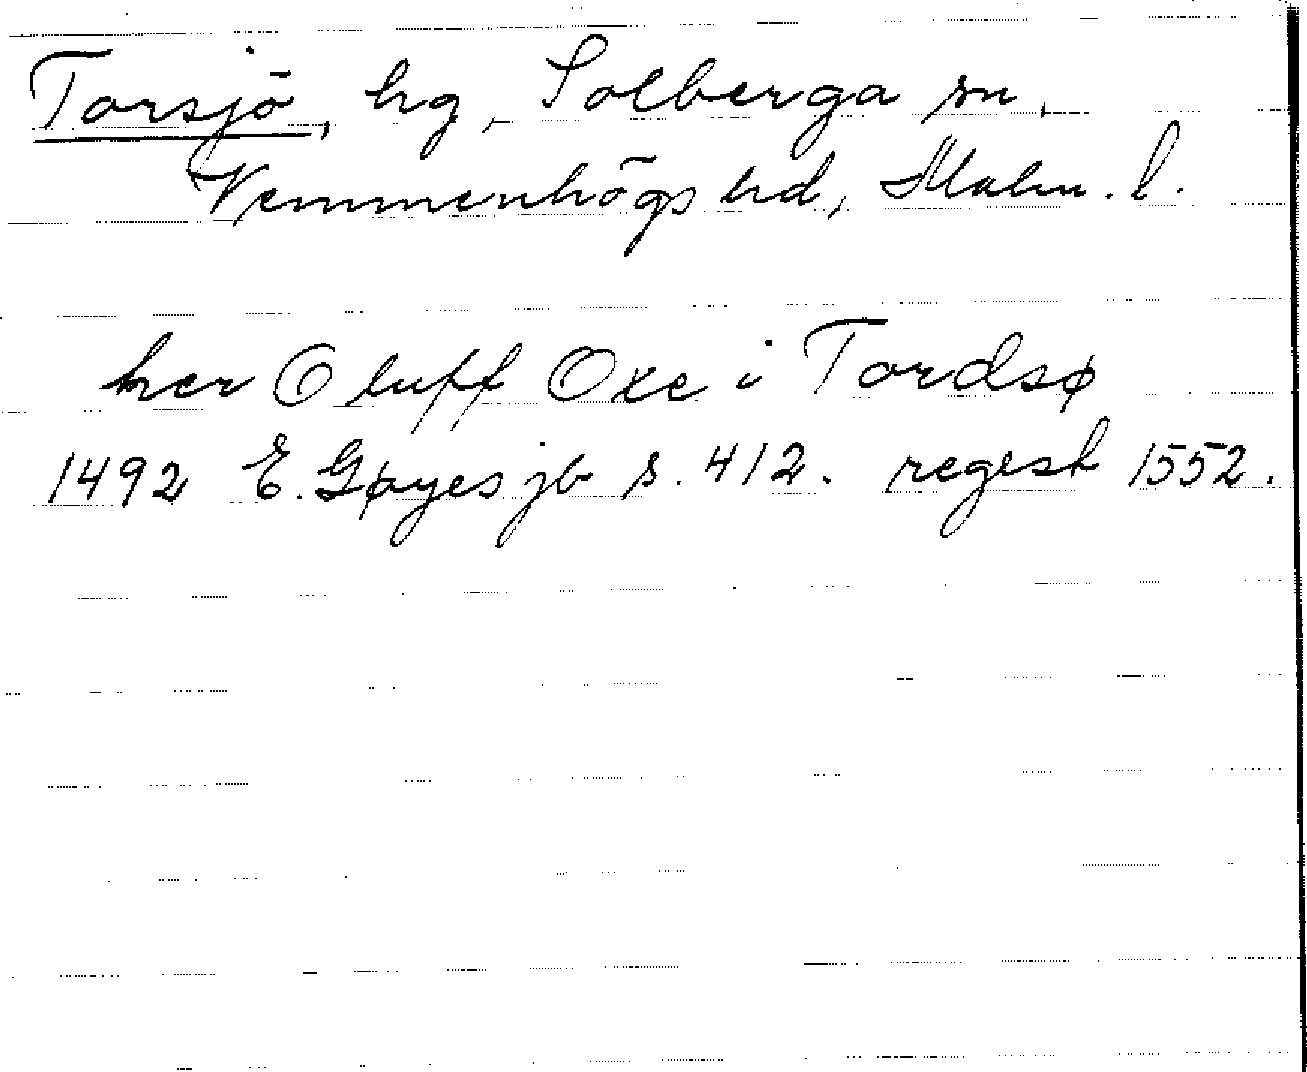 Torsjö, hg, Solberga sn,
Vemmenhögs hd, Malm. l.
her Oluff Oxe i Tordsø
1492 E. Gøyes jb s. 412. regest 1552.